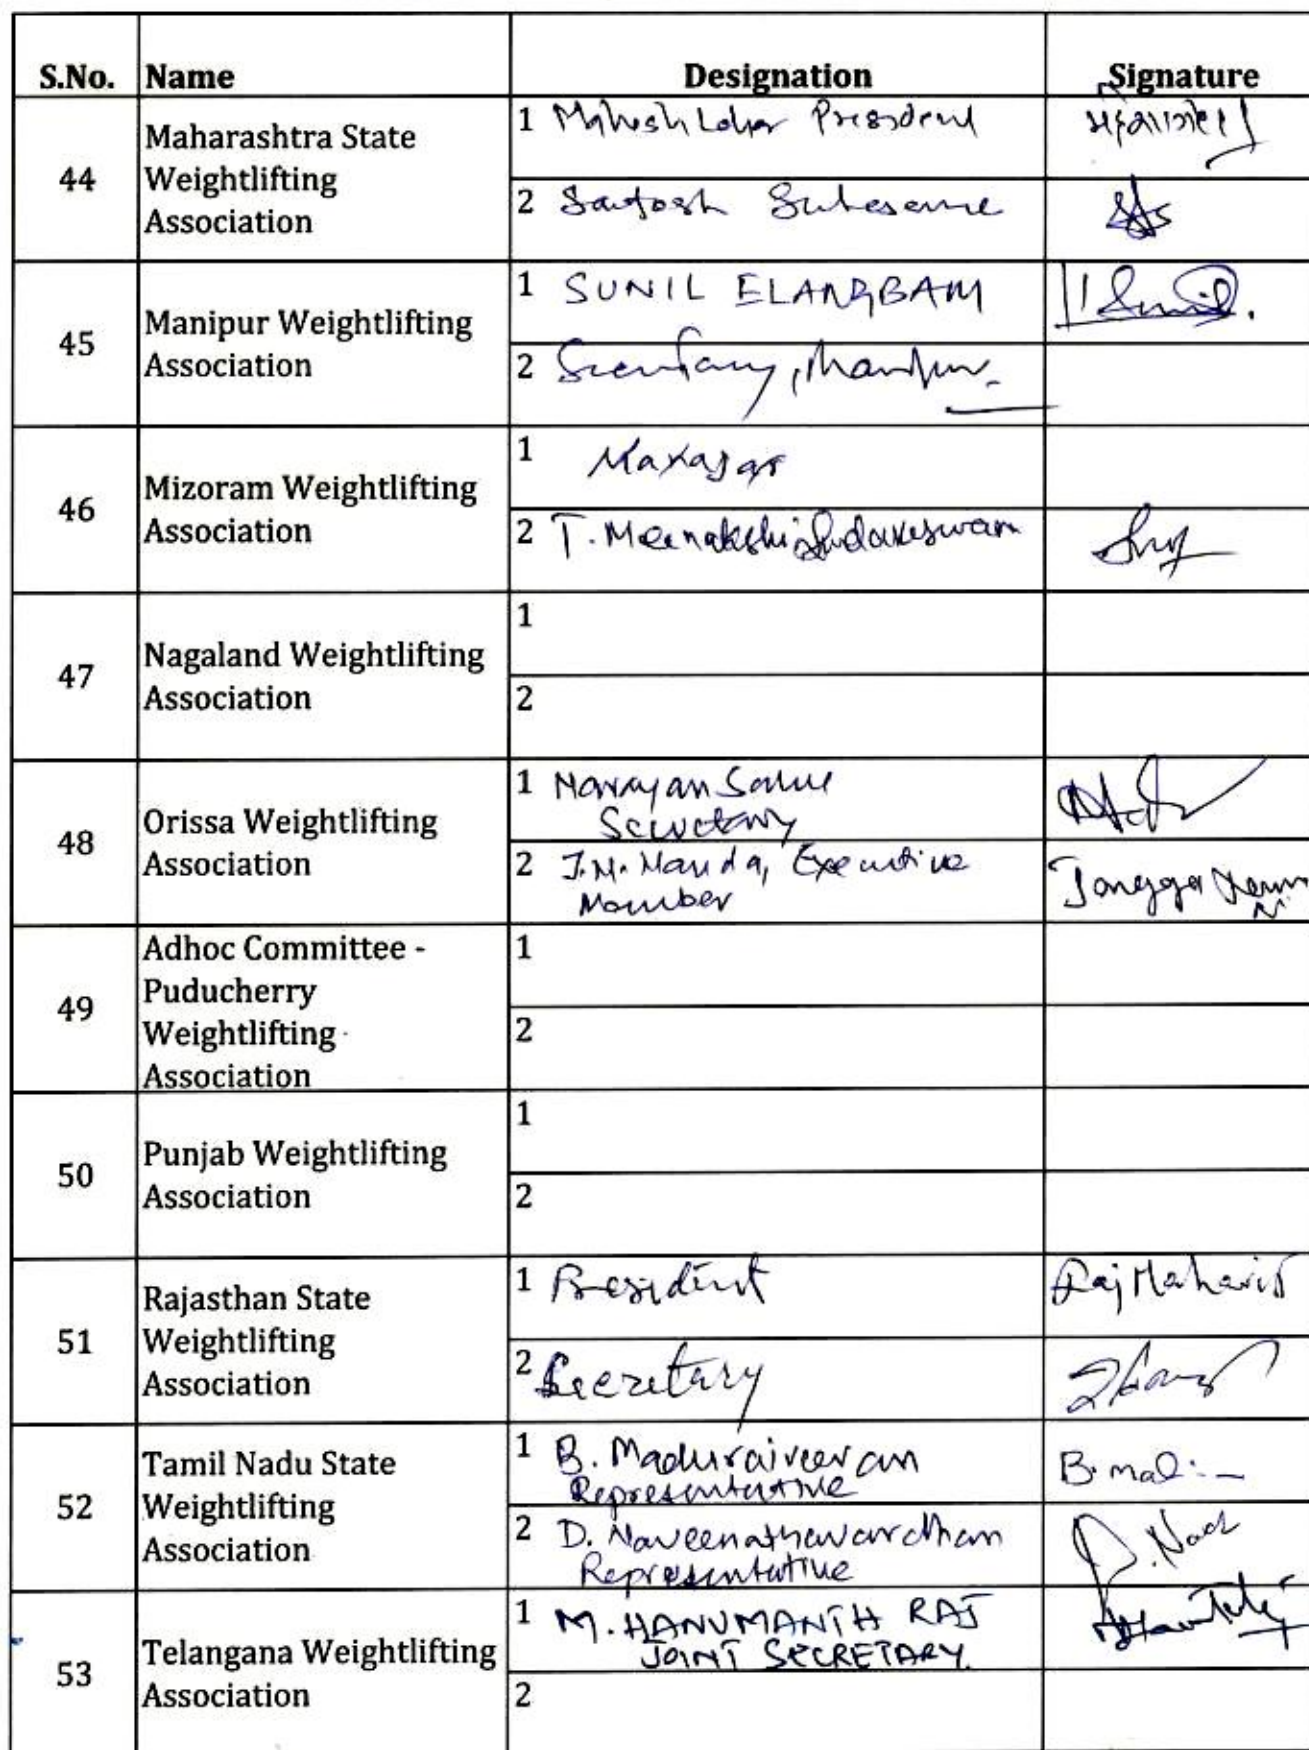 S.No. Name Designation Signature
44
Maharashtra State
Weightlifting
Association
1 Mahesh Lohar President
2 Santosh
45
Manipur Weightlifting
Association
1 SUNIL ELANGBAM
2 Secretary, Manipur.
46
Mizoram Weightlifting
Association
1
2 T. Meenakshi
47
Nagaland Weightlifting
Association
1
2
48
Orissa Weightlifting
Association
1 Narayan Sahu
Secretary
2 J.N. Nanda, Executive
Member
49
Adhoc Committee -
Puducherry
Weightlifting
Association
1
2
50
Punjab Weightlifting
Association
1
2
51
Rajasthan State
Weightlifting
Association
1 President
2 Secretary
52
Tamil Nadu State
Weightlifting
Association
1 B. Maduraiveeran
Representative
2 D. Naveenathavardhan
Representative
53
Telangana Weightlifting
Association
1 M. HANUMANTH RAJ
JOINT SECRETARY.
2